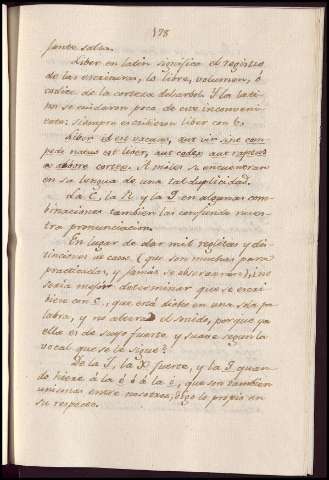 178
sante salva.
Liber en latin significa el registro
de las escrituras, lo libre, volumen, ó
codice de la corteza del arbol. Y los lati-
nos se cuidaron poco de este inconveni-
ente: siempre escribieron liber con b.
Liber id est vacuus, aut vir sine com-
pede natus est liber, aut codex aut
arbore cortex. A miles se encuentran
en su lengua de una tal duplicidad.
La C, la X y la J en algunas com-
binaciones tambien las confunde nues-
tra pronunciacion.
En lugar de dar mil regletas y dis-
tinciones de casos (que son muchas para
practicadas, y jamas se observaran), ¿no
seria mejor determinar que se escri-
biese con C, que está dicho en una sola pa-
labra, y no altera el sonido, porque ya
ella es de suyo fuerte, y suave segun la
vocal que se le sigue?
De la J, la X fuerte, y la G quan-
do hiere á la é ó á la i, que son tambien
unisonas entre nosotros, digo lo propio en
su respecto.